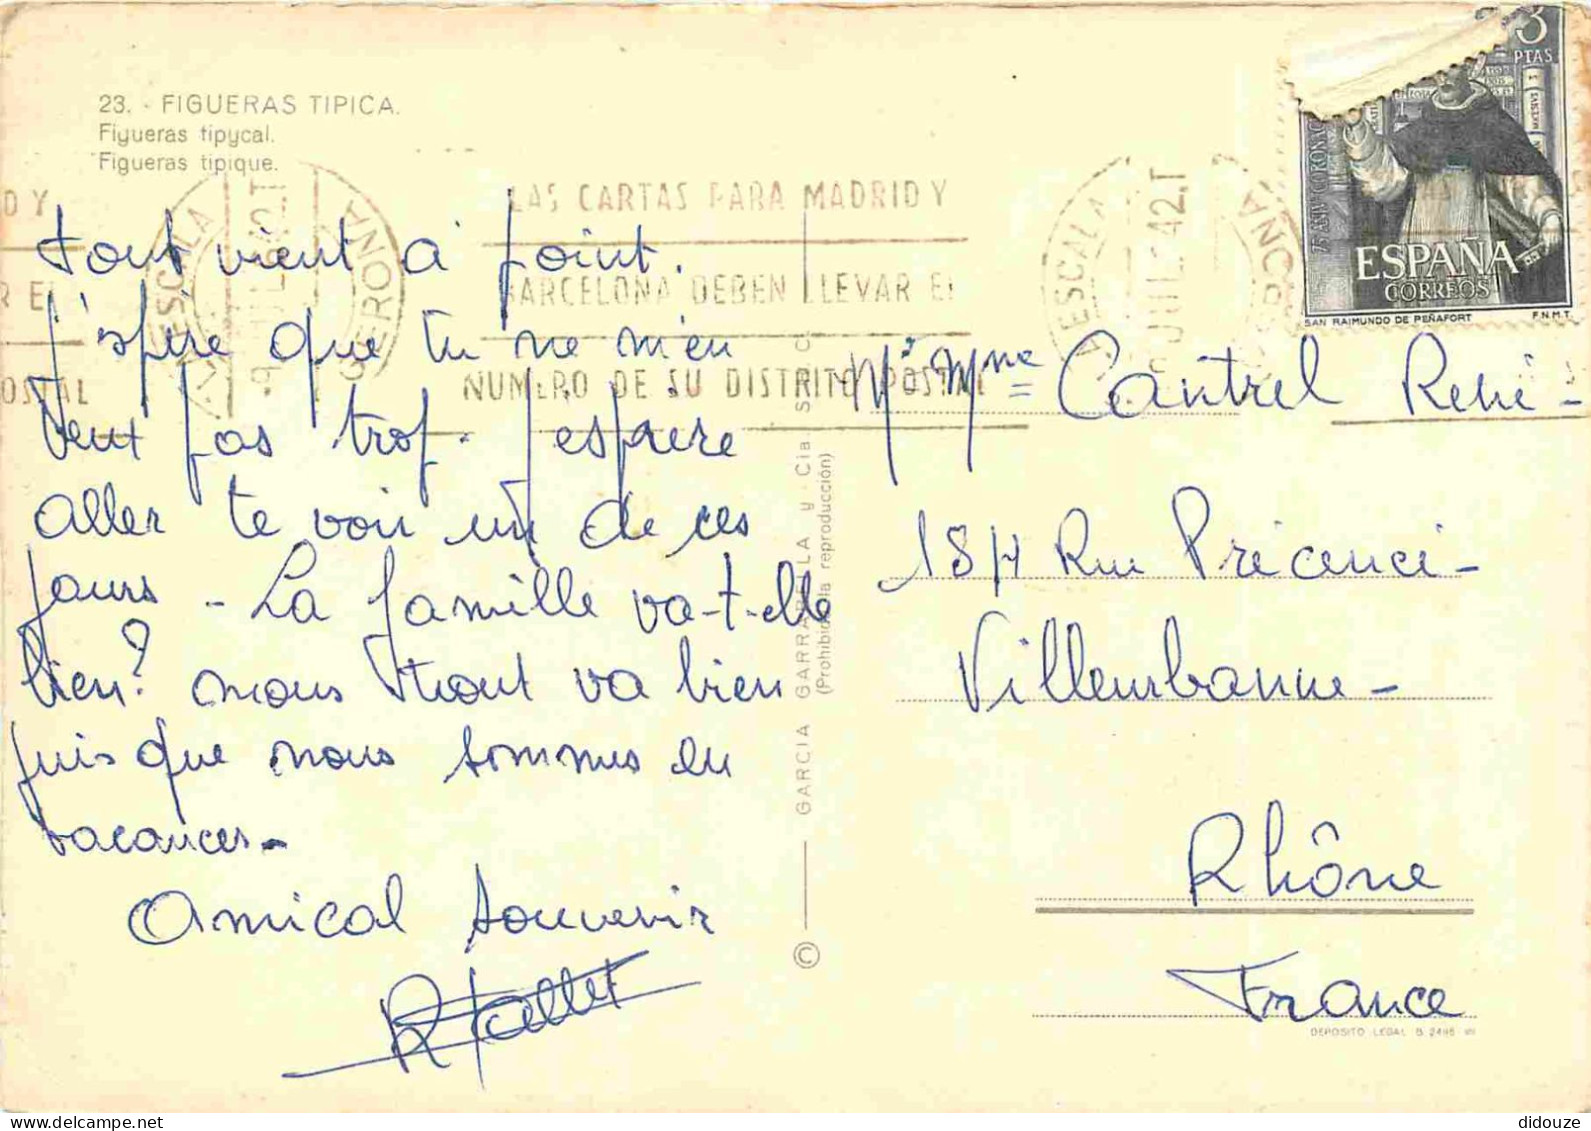 23. - FIGUERAS TIPICA.
Figueras tipycal.
Figueras tipique.
LA ESCALA
GERONA
LAS CARTAS PARA MADRID Y
BARCELONA DEBEN LLEVAR EL
NUMERO DE SU DISTRITO POSTAL
D Y
R EL
OSTAL
LA ESCALA
GERONA
3
PTAS
ESPAÑA
CORREOS
SAN RAIMUNDO DE PEÑAFORT
F.N.M.T.
tout vient à point.
j'spère que tu ne m'en
veux pas trop. j'espaere
aller te voir un de ces
jours - La famille va-t-elle
bien? nous tout va bien
puis que nous sommes en
vacances -
Amical souvenir
GARCIA GARRABELLA y Cia.
(Prohibida la reproducción)
©
Mr Mme Cantrel René -
Rue
Villeurbanne -
Rhône
France
DEPOSITO LEGAL B. 2496
didouze